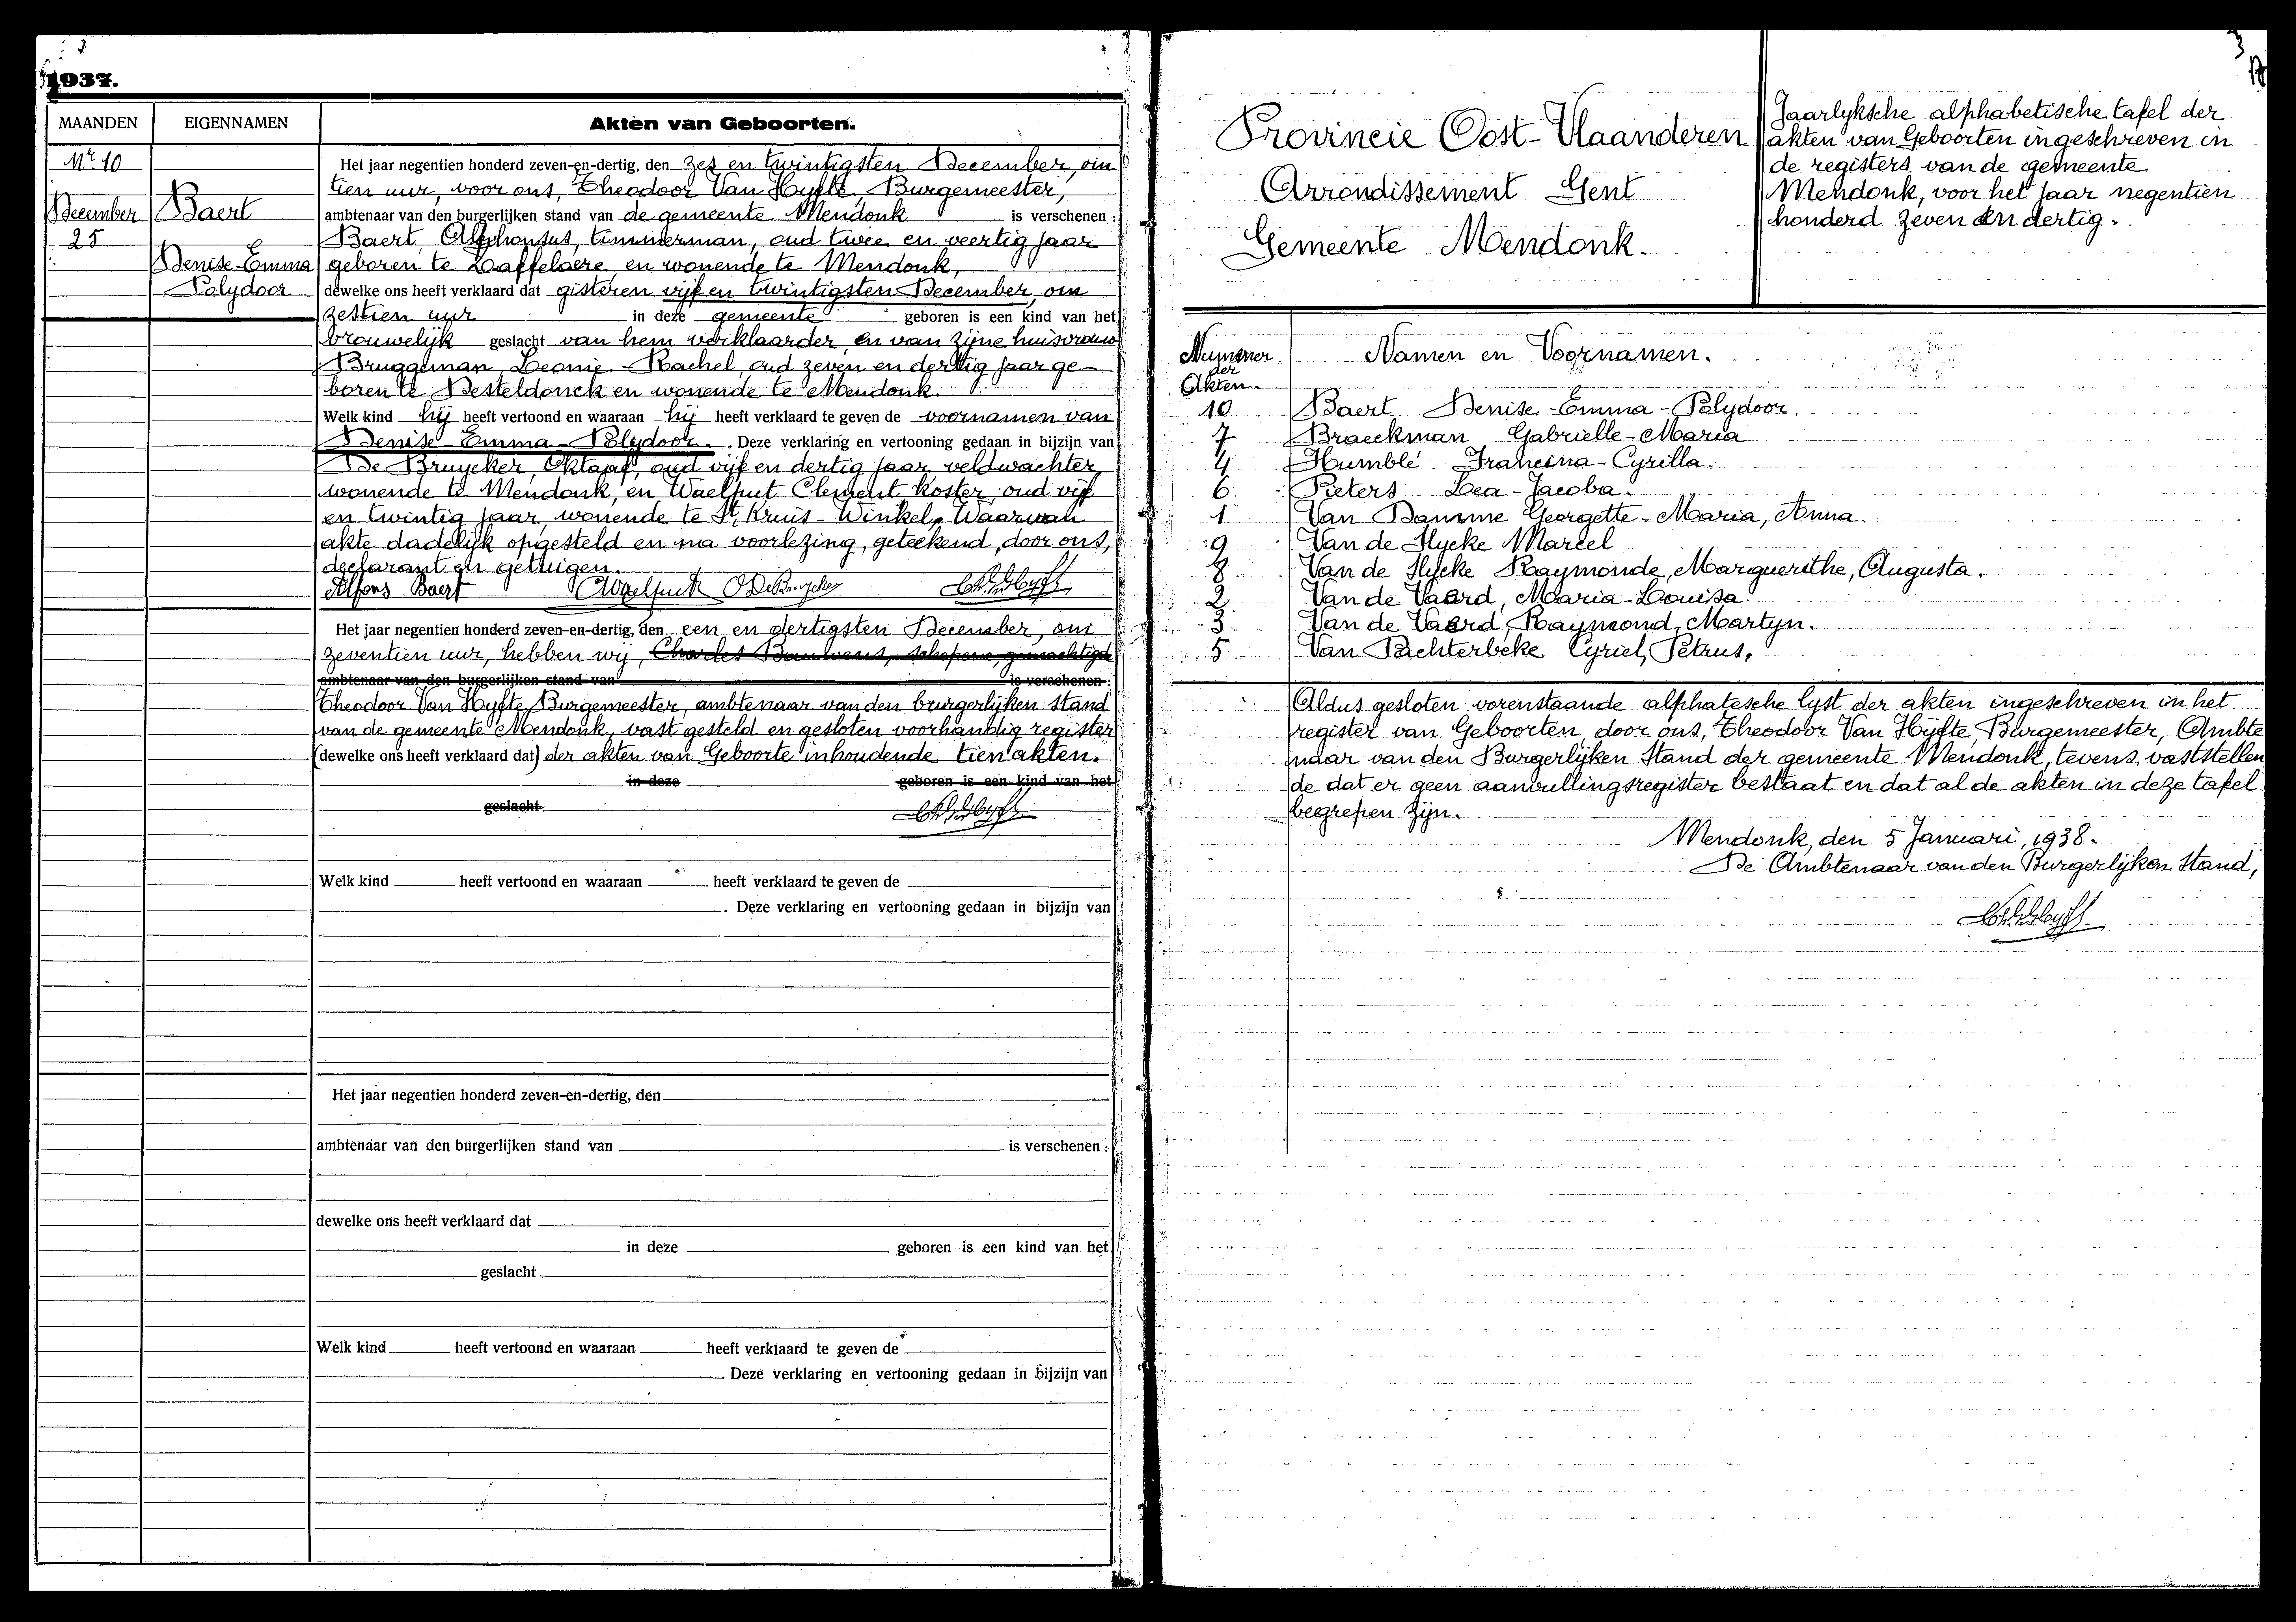 1937.
MAANDEN EIGENNAMEN Akten van Geboorten.
Nr 10
December
25
Baert
Denise-Emma
Polydoor
Het jaar negentien honderd zeven-en-dertig, den zes en twintigsten December, om
tien uur, voor ons, Theodoor Van Hyfte, Burgemeester,
ambtenaar van den burgerlijken stand van de gemeente Mendonk is verschenen :
Baert Alphonsus, timmerman, oud twee en veertig jaar
geboren te Zaffelaere en wonende te Mendonk,
dewelke ons heeft verklaard dat gisteren vijf en twintigsten December, om
zestien uur in deze gemeente geboren is een kind van het
vrouwelijk geslacht van hem verklaarder en van zijne huisvrouw
Bruggeman, Leonie-Rachel, oud zeven en dertig jaar ge-
boren te Desteldonck en wonende te Mendonk.
Welk kind hij heeft vertoond en waaraan hij heeft verklaard te geven de voornamen van
Denise-Emma-Polydoor. . Deze verklaring en vertooning gedaan in bijzijn van
De Bruycker, Oktaaf, oud vijf en dertig jaar veldwachter,
wonende te Mendonk, en Waelput Clement Koster, oud vijf
en twintig jaar, wonende te St, Kruis-Winkel, Waarvan
akte dadelijk opgesteld en na voorlezing, geteekend, door ons,
declarant en getuigen.
Alfons Baert CWaelput ODeBruycker
Het jaar negentien honderd zeven-en-dertig, den een en dertigsten December, om
zeventien uur, hebben wij, Charles Bauwens, schepene, gemachtigde
ambtenaar van den burgerlijken stand van is verschenen :
Theodoor Van Hyfte, Burgemeester, ambtenaar van den burgerlijken stand
van de gemeente Mendonk, vast gesteld en gesloten voorhandig register
(dewelke ons heeft verklaard dat) der akten van Geboorte inhoudende tien akten.
in deze geboren is een kind van het
geslacht
Welk kind heeft vertoond en waaraan heeft verklaard te geven de
. Deze verklaring en vertooning gedaan in bijzijn van
Het jaar negentien honderd zeven-en-dertig, den
ambtenaar van den burgerlijken stand van is verschenen :
dewelke ons heeft verklaard dat
in deze geboren is een kind van het
geslacht
Welk kind heeft vertoond en waaraan heeft verklaard te geven de
. Deze verklaring en vertooning gedaan in bijzijn van
3
Provincie Oost-Vlaanderen
Arrondissement Gent
Gemeente Mendonk.
Jaarlyksche alphabetische tafel der
akten van Geboorten ingeschreven in
de registers van de gemeente
Mendonk, voor het jaar negentien
honderd zeven en dertig.
Nummer
der
Akten.
Namen en Voornamen.
10 Baert Denise-Emma-Polydoor.
7 Braeckman Gabrielle-Maria
4 Humblé Francina-Cyrilla.
6 Pieters Lea-Jacoba.
1 Van Damme Georgette-Maria, Anna.
9 Van de Slycke Marcel
8 Van de Slycke Raymonde, Marguerithe, Augusta.
2 Van de Vaerd, Maria-Louisa.
3 Van de Vaerd, Raymond, Martyn.
5 Van Pachterbeke Cyriel, Petrus,
Aldus gesloten vorenstaande alphatesche lyst der akten ingeschreven in het
register van Geboorten, door ons, Theodoor Van Hijfte, Burgemeester, Ambte
naar van den Burgerlijken Stand der gemeente Mendonk, tevens vaststellen
de dat er geen aanvullingsregister bestaat en dat al de akten in deze tafel
begrepen zijn.
Mendonk, den 5 Januari, 1938.
De Ambtenaar van den Burgerlijken Stand,